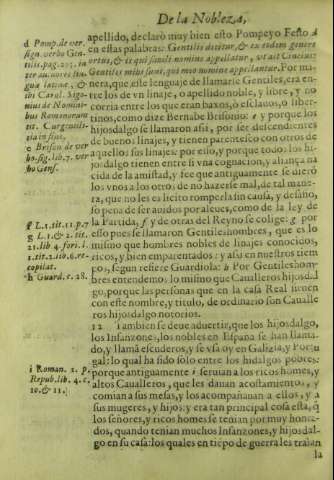 De la Nobleza,
apellido, declarò muy bien esto Pompeyo Festo d
en estas palabras: Gentilis dicitur, & ex eodem genere
ortus, & is qui simili nomine appellatur, vt ait Cincius:
Gentiles mihi sunt, qui meo nomine appellantur. Por ma-
nera, que este lenguage de llamarse Gentiles, era en-
tre los de vn linaje, o apellido noble, y libre, y no
corria entre los que eran baxos, ò esclauos, ò liber-
tinos, como dize Bernabe Brisonio: e y porque los
hijosdalgo se llamaron assi, por ser decendientes
de bueno: linajes, y tienen parentesco con otros de
aquellos sus linajes: por esso, y porque todo: los hi-
josdalgo tienen entre si vna cognacion, y aliança na
cida de la amistad, y fee que antiguamente se dieró
los vnos a los otros, de no hazerse mal, de tal mane-
ra, que no les es licito romperla sin causa, y desafio,
so pena de ser auidos por aleues, como de la ley de
la Partida, f y de otras del Reyno se colige: g por
esso pues se llamaron Gentileshombres, que es lo
mismo que hombres nobles de linajes conocidos,
ricos, y bien emparentados: y assi en nuestros tiem
pos, segun refiere Guardiola: h Por Gentileshom-
bres entendemos lo mismo que Caualleros hijosdal
go, porque las personas que en la casa Real siruen
con este nombre, y titulo, de ordinario son Caualle
ros hijosdalgo notorios.
12 Tambien se deue aduertir, que los hijosdalgo,
los Infançones, los nobles en España se han llama-
do, y llamã escuderos, y se vsa oy en Galizia, y Portu
gal: lo qual ha sido solo entre los hidalgos pobres:
porque antiguamente i seruian a los ricos homes, y
altos Caualleros, que les dauan acostamiento, y
comian a sus mesas, y los acompañauan a ellos, y a
sus mugeres, y hijos: y era tan principal cosa esta, q̃
los señores, y ricos homes se tenian por muy honra-
dos, quando tenian muchos Infançones, y hijosdal-
go en su casa: los quales en tiẽpo de guerra les traian
la
d Pomp. de ver.
sign. verbo Gen-
tilis. pag. 205. in-
ter auctores lin-
guæ latinæ, &
ibi Carol. Sigo-
nius de Nomini-
bus Romanorum
tit.
e Brison de ver-
bo. sig. lib. 7. ver-
bo Gens.
f L. 1. tit. 11. p. 7
g L. 1. & 2. tit.
21. lib. 4. fori. l.
1. tit. 2. lib. 6. re-
copilat.
h Guard. c. 28.
i Roman. 2. p.
Repub. lib. 4. c.
10. & 11.